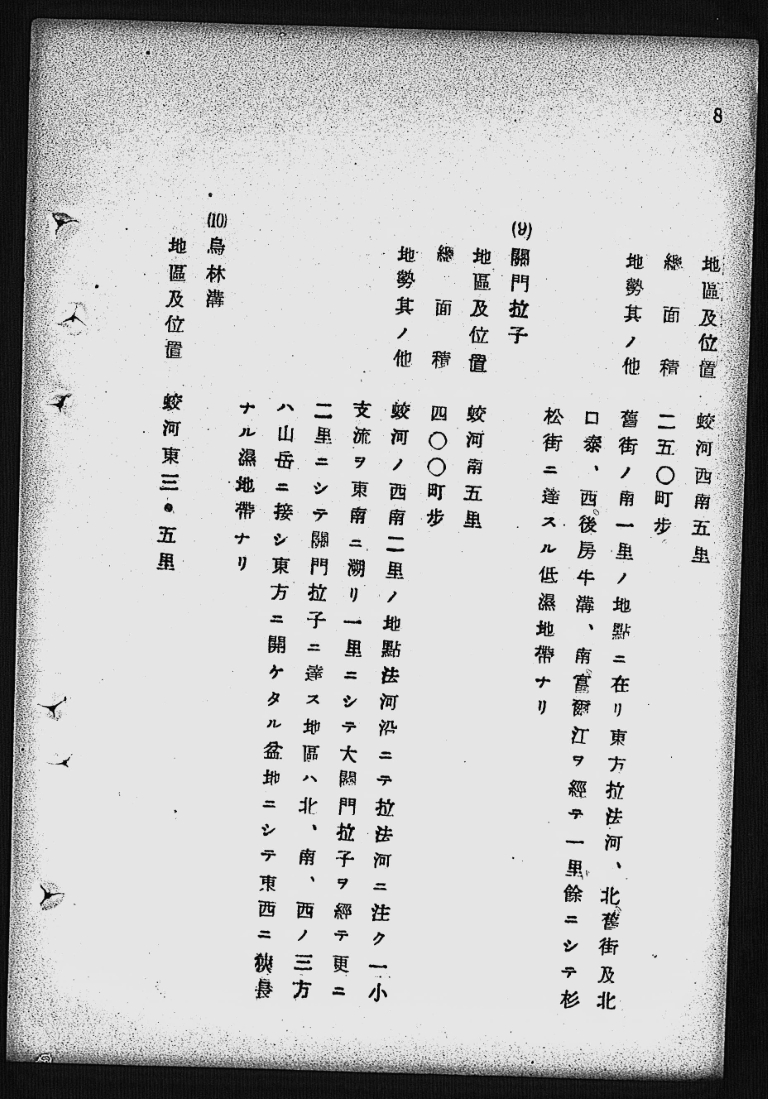 8
地區及位置 蛟河西南五里
總面積 二五〇町步
地勢其ノ他 舊街ノ南一里ノ地點ニ在リ東方拉法河、北舊街及北
口泰、西後房牛溝、南富爾江ヲ經テ一里餘ニシテ杉
松街ニ達スル低濕地帶ナリ
(9) 關門拉子
地區及位置 蛟河南五里
總面積 四〇〇町步
地勢其ノ他 蛟河ノ西南二里ノ地點法河沿ニテ拉法河ニ注ク一小
支流ヲ東南ニ溯リ一里ニシテ大關門拉子ヲ經テ更ニ
二里ニシテ關門拉子ニ達ス地區ハ北、南、西ノ三方
ハ山岳ニ接シ東方ニ開ケタル盆地ニシテ東西ニ狹長
ナル濕地帶ナリ
(10) 烏林溝
地區及位置 蛟河東三•五里